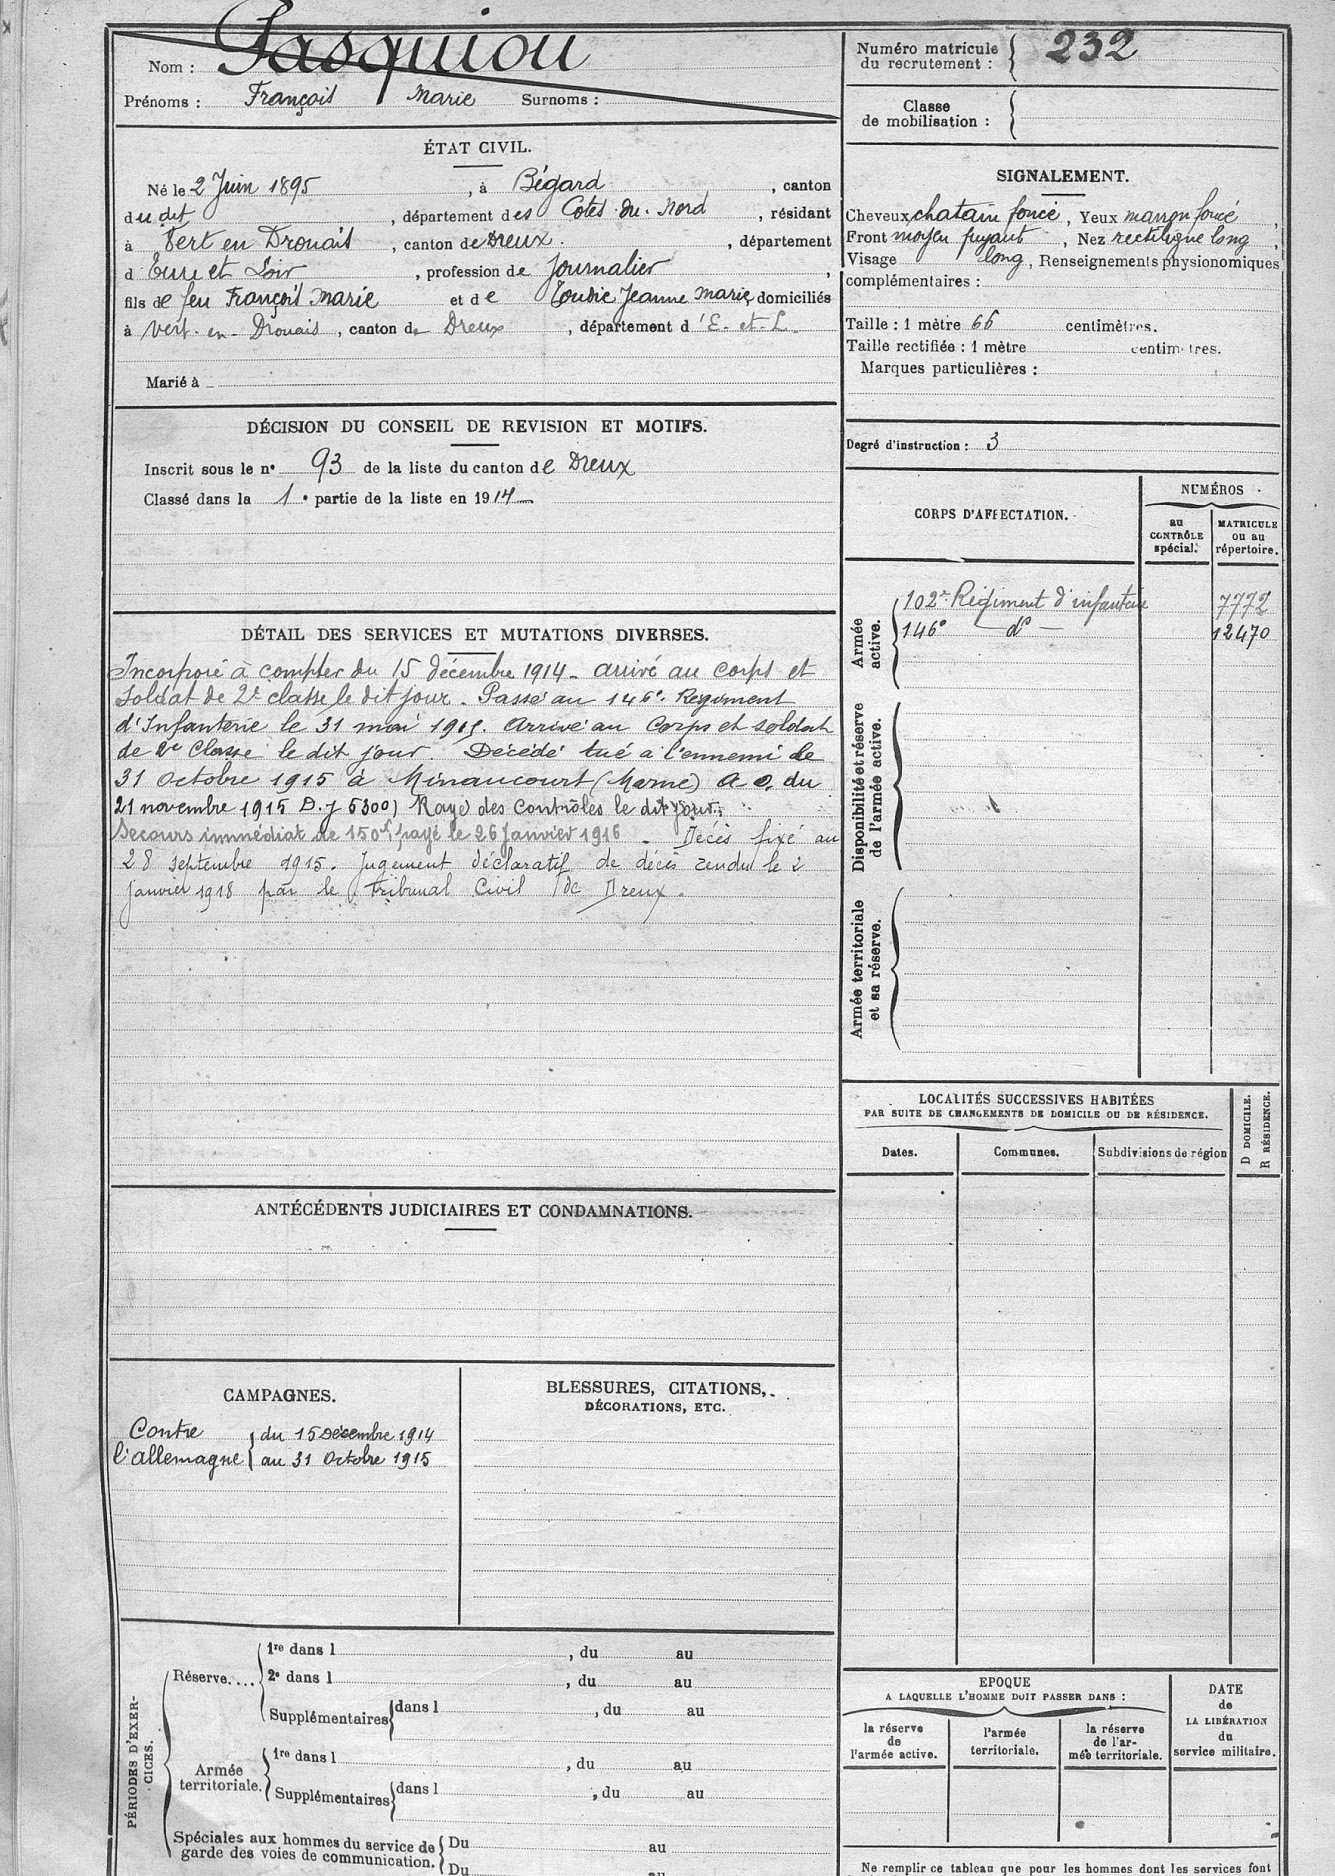 Nom : Pasquiou
Prénoms : François Marie Surnoms :
Numéro matricule
du recrutement : 232
Classe
de mobilisation :
ÉTAT CIVIL.
Né le 2 Juin 1895, à Bégard, canton
du dit, département des Cotes-du-Nord, résidant
à Vert en Drouais, canton de Dreux, département
d'Eure et Loir, profession de Journalier,
fils de feu François Marie et de Toudic Jeanne Marie, domiciliés
à Vert-en-Drouais, canton de Dreux, département d'E-et-L.
Marié à
SIGNALEMENT.
Cheveux chatain foncé, Yeux marron foncé,
Front moyen fuyant, Nez rectiligne long,
Visage long, Renseignements physionomiques
complémentaires :
Taille : 1 mètre 66 centimètres.
Taille rectifiée : 1 mètre centimètres.
Marques particulières :
DÉCISION DU CONSEIL DE REVISION ET MOTIFS.
Inscrit sous le n° 93 de la liste du canton de Dreux
Classé dans la 1e partie de la liste en 1914
Degré d'instruction : 3
CORPS D'AFFECTATION.
NUMÉROS
au
CONTRÔLE
spécial.
MATRICULE
ou au
répertoire.
Armée
active.
102e Régiment d'infanterie 7772
146e — do — 12470
Disponibilité et réserve
de l'armée active.
Armée territoriale
et sa réserve.
DÉTAIL DES SERVICES ET MUTATIONS DIVERSES.
Incorporé à compter du 15 décembre 1914 - arrivé au corps et
soldat de 2e classe le dit jour. Passé au 146e Régiment
d'Infanterie le 31 mai 1915. Arrivé au Corps et soldat
de 2e Classe le dit jour Décédé tué a l'ennemi le
31 octobre 1915 à Minaucourt (Marne) A. O. du
21 novembre 1915 D. J 5300) Rayé des Contrôles le dit jour.
Secours immédiat de 150f payé le 26 Janvier 1916. Décès fixé au
28 septembre 1915. Jugement déclaratif de décès rendu le 2
janvier 1918 par le tribunal Civil de Dreux.
LOCALITÉS SUCCESSIVES HABITÉES
PAR SUITE DE CHANGEMENTS DE DOMICILE OU DE RÉSIDENCE.
Dates. Communes. Subdivisions de région
D DOMICILE.
R RÉSIDENCE.
ANTÉCÉDENTS JUDICIAIRES ET CONDAMNATIONS.
CAMPAGNES.
Contre du 15 Décembre 1914
l'allemagne au 31 Octobre 1915
BLESSURES, CITATIONS,
DÉCORATIONS, ETC.
PÉRIODES D'EXER-
CICES.
Réserve....
1re dans l , du au
2e dans l , du au
Supplémentaires dans l , du au
Armée
territoriale.
1re dans l , du au
Supplémentaires dans l , du au
Spéciales aux hommes du service de
garde des voies de communication.
Du au
Du au
EPOQUE
A LAQUELLE L'HOMME DOIT PASSER DANS :
la réserve
de
l'armée active.
l'armée
territoriale.
la réserve
de l'ar-
mée territoriale.
DATE
de
LA LIBÉRATION
du
service militaire.
Ne remplir ce tableau que pour les hommes dont les services font